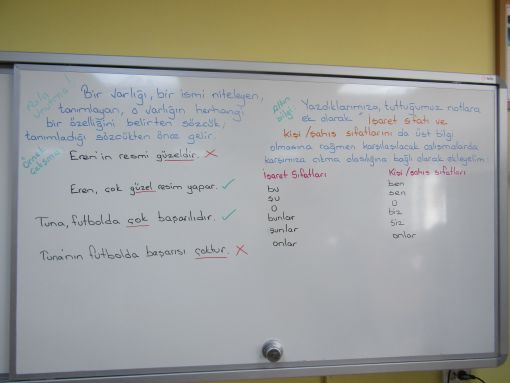 Bilgi Unutma!
Bir varlığı, bir ismi niteleyen,
tanımlayan, o varlığın herhangi
bir özelliğini belirten sözcük,
tanımladığı sözcükten önce gelir.
Örnek Çalışma
Eren'in resmi güzeldir. ✗
Eren, çok güzel resim yapar. ✓
Tuna, futbolda çok başarılıdır. ✓
Tuna'nın futbolda başarısı çoktur. ✗
Altın bilgi:
Yazdıklarımıza, tuttuğumuz notlara
ek olarak "İşaret sıfatı ve
kişi/şahıs sıfatlarını da üst bilgi
olmasına rağmen karşılaşılacak çalışmalarda
karşımıza çıkma olasılığına bağlı olarak ekleyelim:
İşaret Sıfatları
bu
şu
O
bunlar
şunlar
onlar
Kişi/şahıs sıfatları
ben
sen
O
biz
siz
onlar